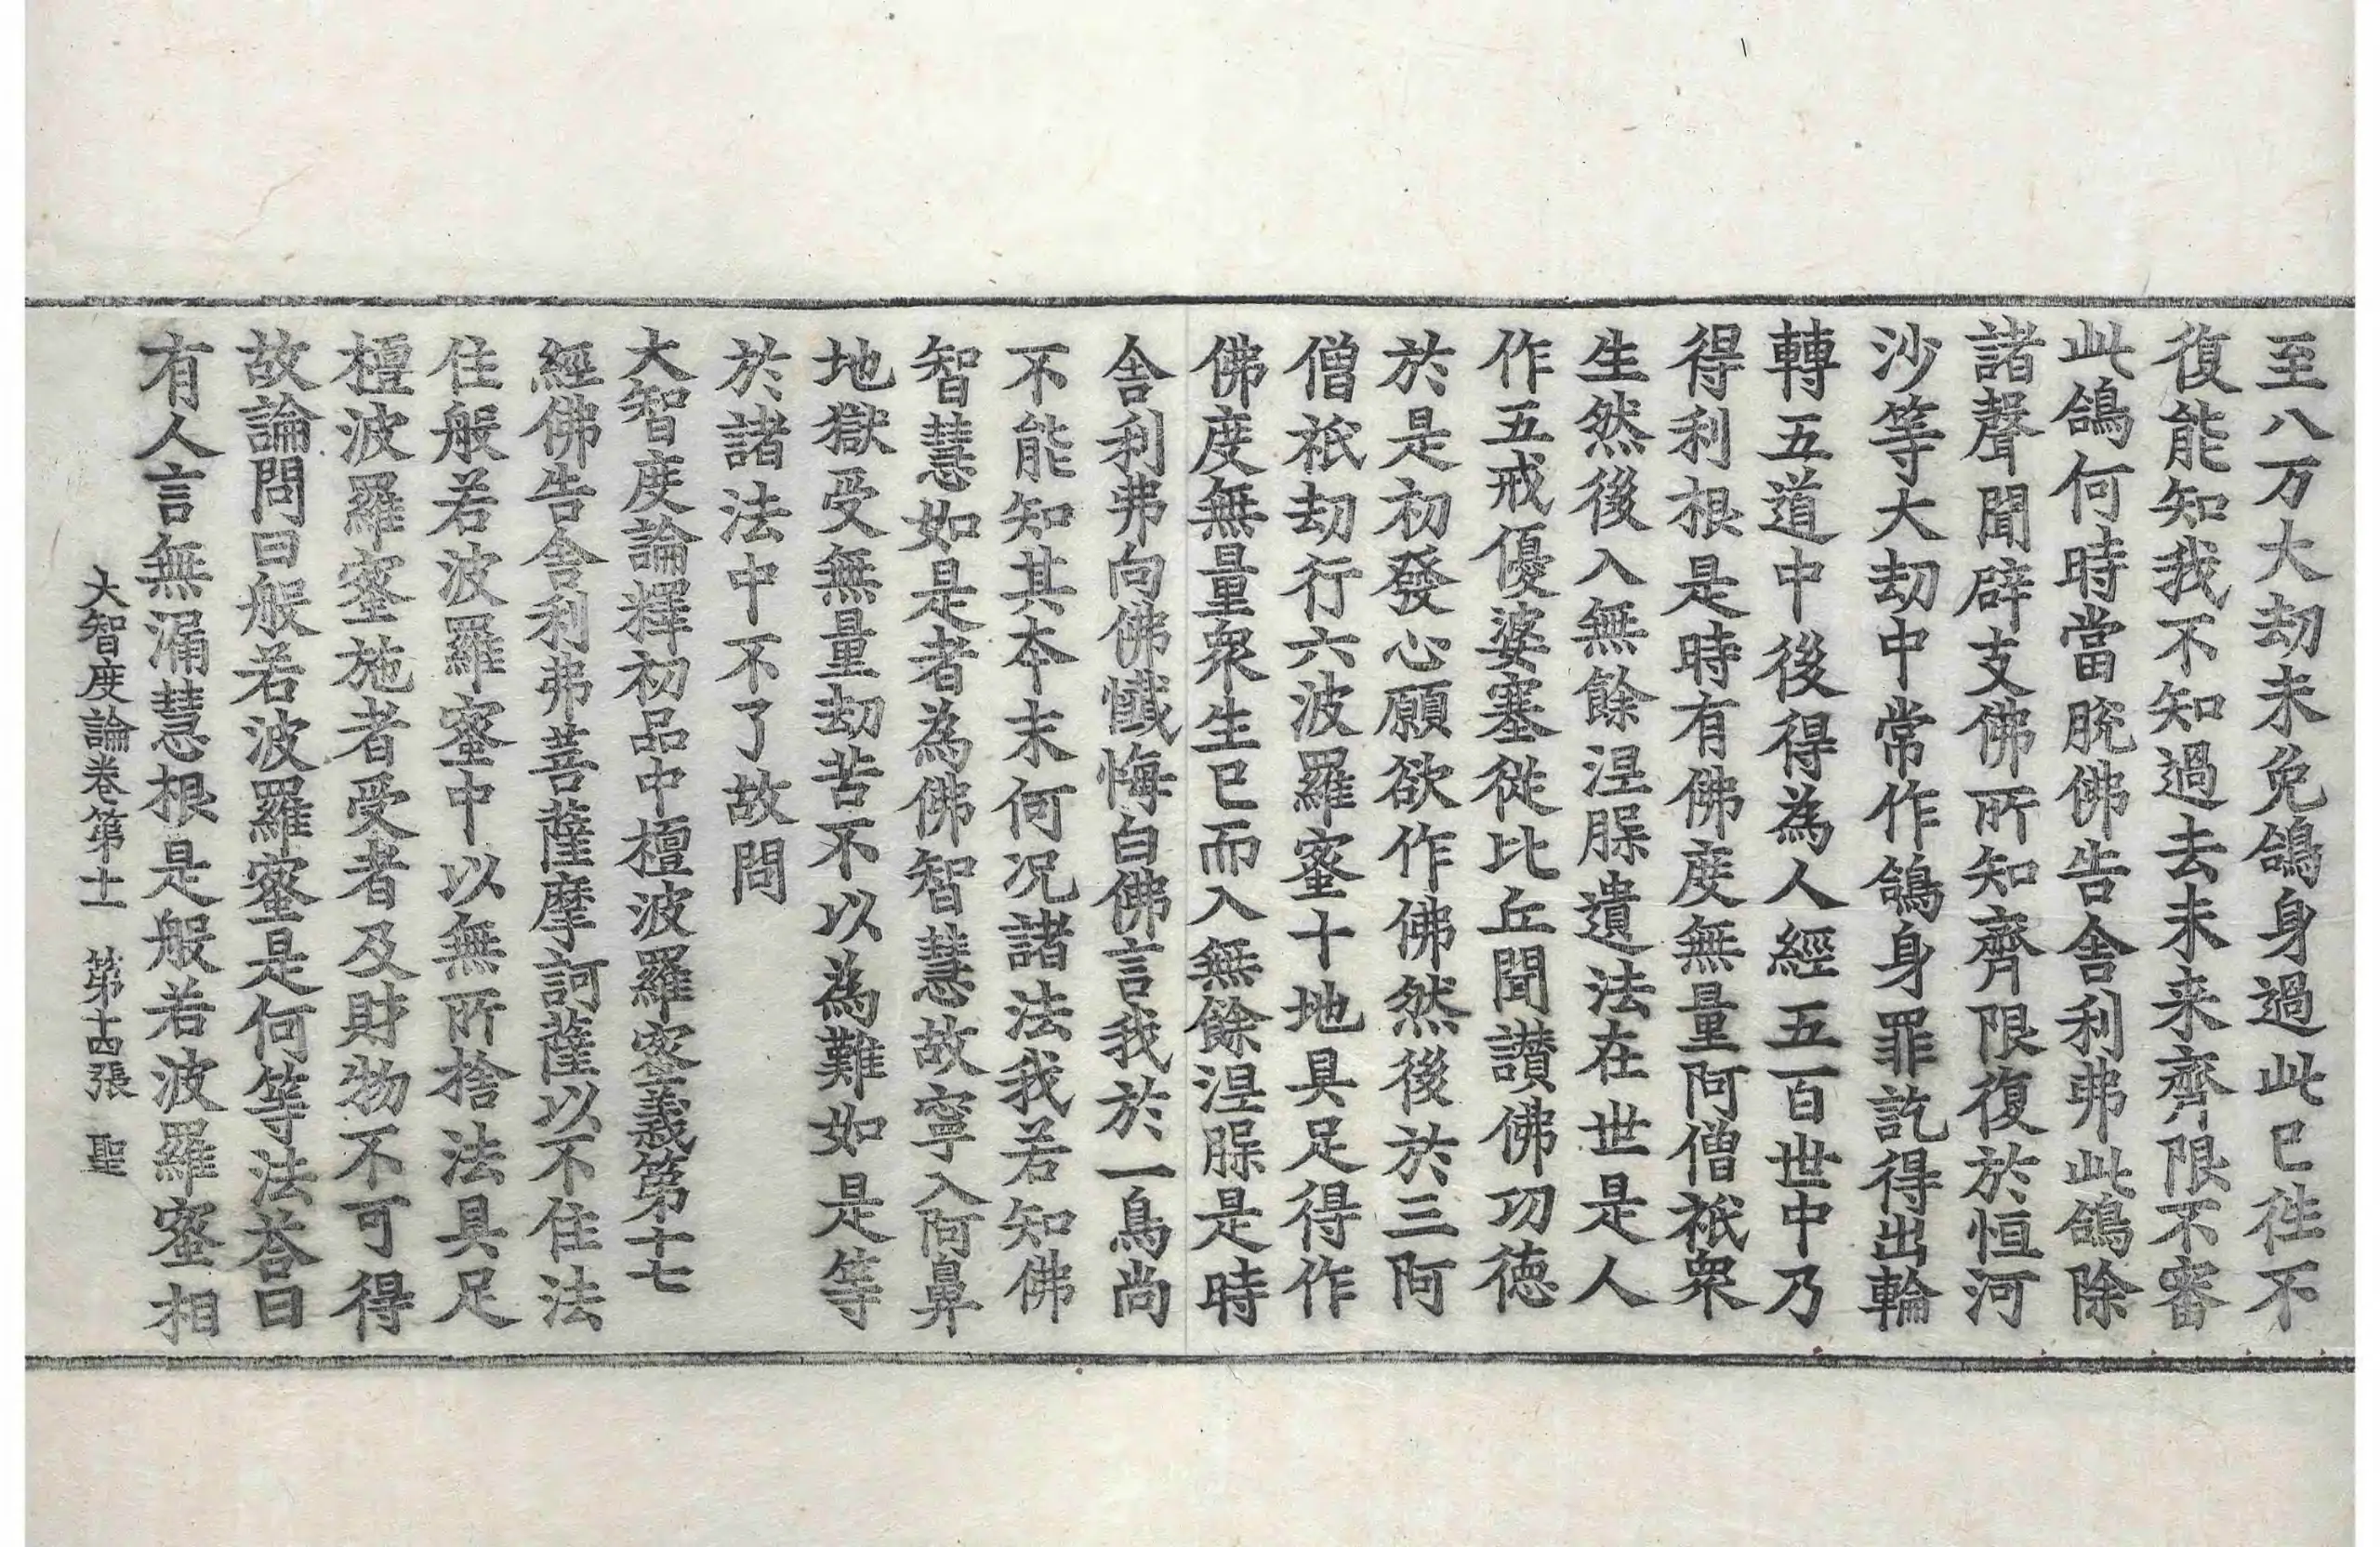 至八万大劫未免鴿身過此已徃不
復能知我不知過去未来齊限不審
此鴿何時當脫佛告舍利弗此鴿除
諸聲聞辟支佛所知齊限復於恒河
沙等大劫中常作鴿身罪訖得出輪
轉五道中後得為人經五百世中乃
得利根是時有佛度無量阿僧祇衆
生然後入無餘涅槃遺法在世是人
作五戒優婆塞從比丘聞讃佛功徳
於是初發心願欲作佛然後於三阿
僧祇劫行六波羅蜜十地具足得作
佛度無量衆生已而入無餘涅槃是時
舍利弗向佛懺悔白佛言我於一鳥尚
不能知其本末何况諸法我若知佛
智慧如是者為佛智慧故寧入阿鼻
地獄受無量劫苦不以為難如是等
於諸法中不了故問
大智度論釋初品中檀波羅蜜義第十七
經佛告舍利弗菩薩摩訶薩以不住法
住般若波羅蜜中以無所捨法具足
檀波羅蜜施者受者及財物不可得
故論問曰般若波羅蜜是何等法荅曰
有人言無漏慧根是般若波羅蜜相
大智度論卷第十一 第十四張 聖